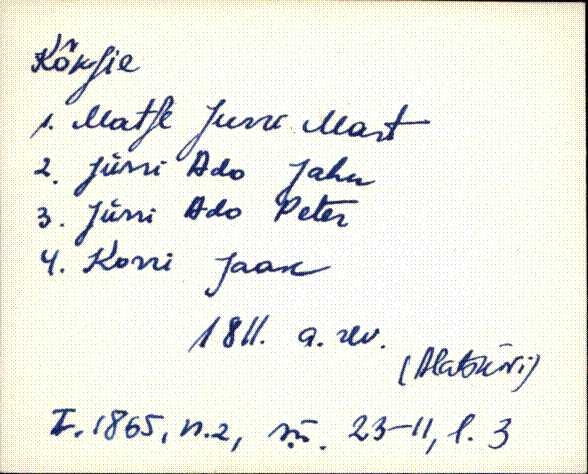 Kõksie
1. Matse Jurri Mart
2. Jürri Ado Jahn
3. Jürri Ado Peter
4. Korri Jaak
1811. a. rev.
(Alatskivi)
F. 1865, n. 2, sü. 23-11, l. 3